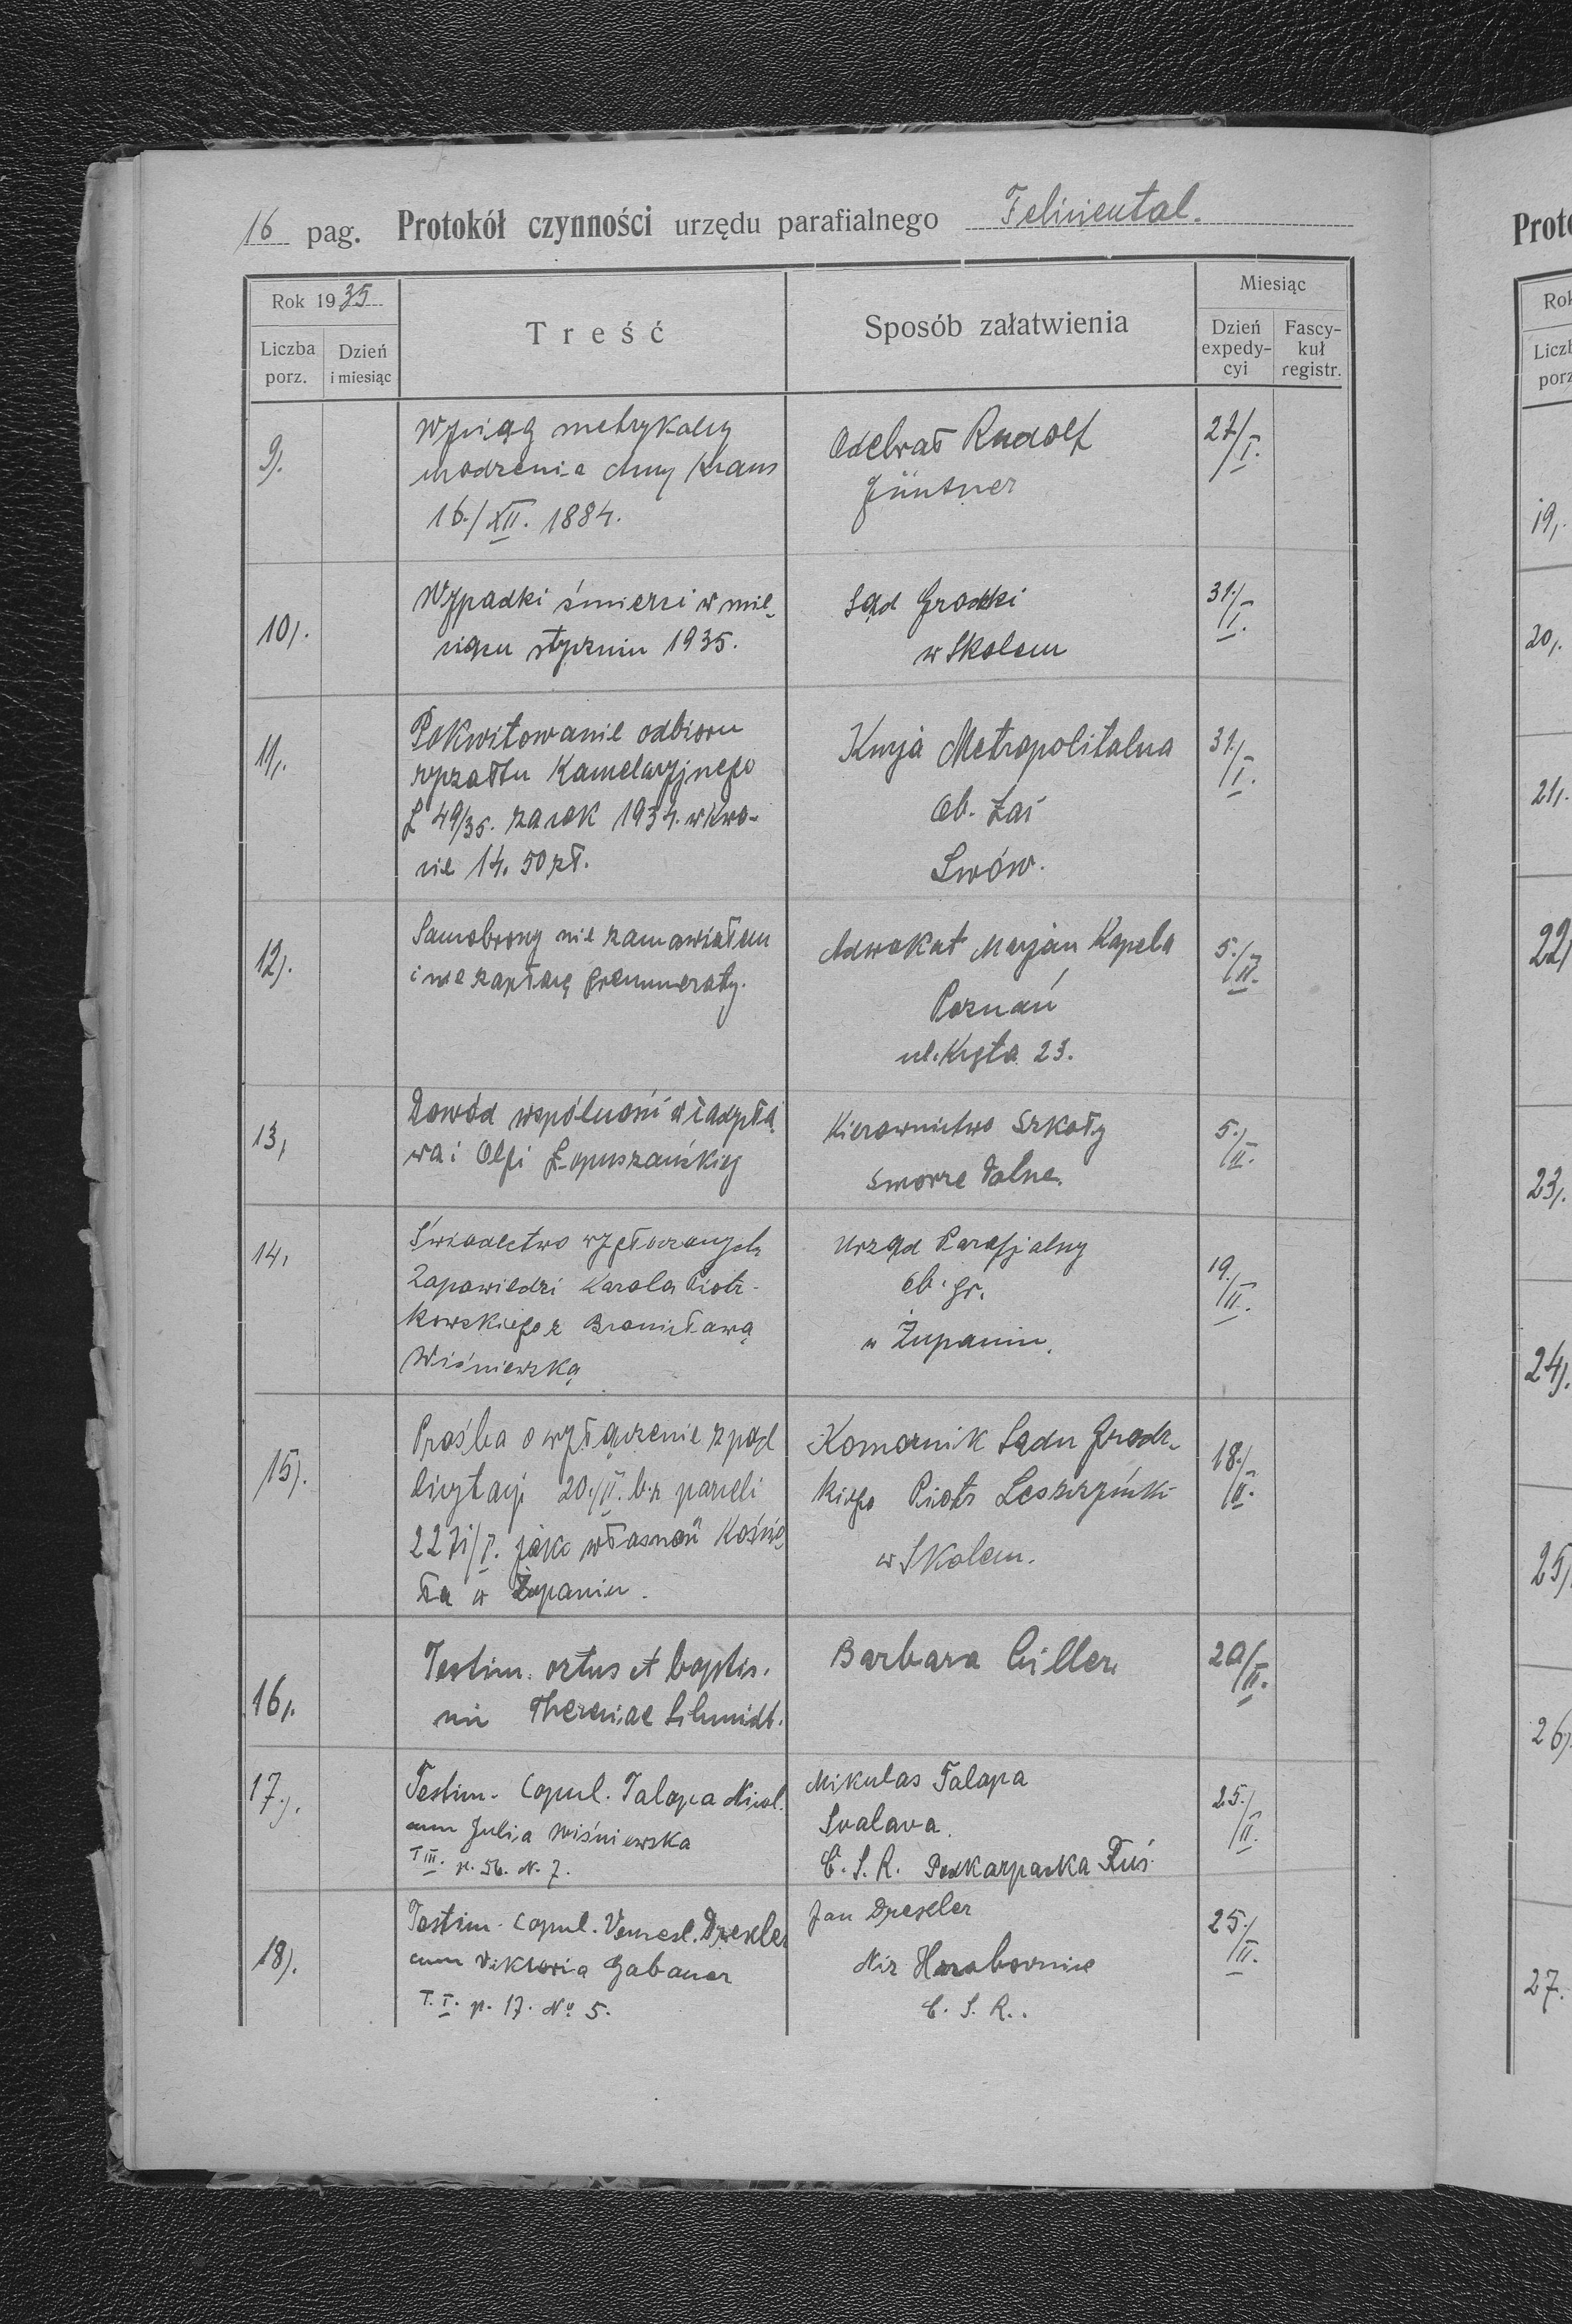 16 pag. Protokół czynności urzędu parafialnego Feliziental.
Rok 1935
Treść
Sposób załatwienia
Miesiąc
Liczba porz.
Dzień i miesiąc
Dzień expedycyi
Fascykuł registr.
9).
Wyciąg metrykalny
urodzenia Anny Kraus
16./XII. 1884.
Odebrał Rudolf
Güntner
27/I.
10).
Wypadki śmierci w mie-
siącu styczniu 1935.
Sąd Grodzki
w Skolem
31./I.
11).
Pokwitowanie odbioru
ryczałtu Kancelaryjnego
L 49/35. za rok 1934. w kwo-
cie 14.50 zł.
Kurja Metropolitalna
Ob. łać
Lwów.
31./I.
12).
Samobrony nie zamawiałem
i nie zapłacę prenumeraty.
Adwokat Marjan Kapela
Poznań
ul. Kręta 23.
5./II.
13,
Dowód wspólności
wa i Olgi Łopuszańskiej
Kierownictwo Szkoły
Smorze Dolne.
5./II.
14,
Świadectwo wygłoszonych
Zapowiedzi Karola Piotr-
kowskiego z Bronisławą
Wiśniewską
Urząd Parafjalny
ob. gr.
w Żupaniu.
19./II.
15).
Prośba o wyłączenie z pod
licytacji 20./II. b.r. parceli
2271/I. jako własność Kościo
ła w Żupaniu.
Komornik Sądu Grodz-
kiego Piotr Leszczyński
w Skolem.
18./II.
16).
Testim. ortus et baptis.
mi Theresiae Schmidt.
Barbara Ciller.
20/II.
17.).
Testim. Copul. Talapa Nicol.
cum Julia Wiśniewska
T III. p. 56. N. 7.
Mikulas Talapa
Svalava.
Č. S. R. Podkarpacka Ruś.
25./II.
18).
Testim. Copul. Vencesl. Drexler
cum Viktoria Gabauer
T. I. p. 17. No 5.
Jan Drexler
Niz Hrabovnice
Č. S. R..
25./II.
Proto
Rok
Liczb
porz
19,.
20,.
21,.
22)
23,.
24).
25)
26)
27.